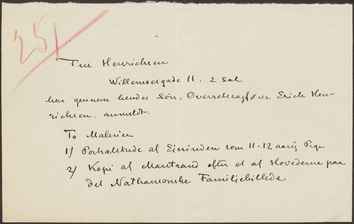 251
Fru Henrichsen
Willemoesgade 11. 2 Sal
har gennem hendes Søn, Overretssagfører Erich Hen-
richsen anmeldt.
To Malerier
1/ Portrætstudie af Ejerinden som 11-12 aarig Pige
2/ Kopi af Marstrand efter et af Hovederne paa
det Nathansonske Familiebillede